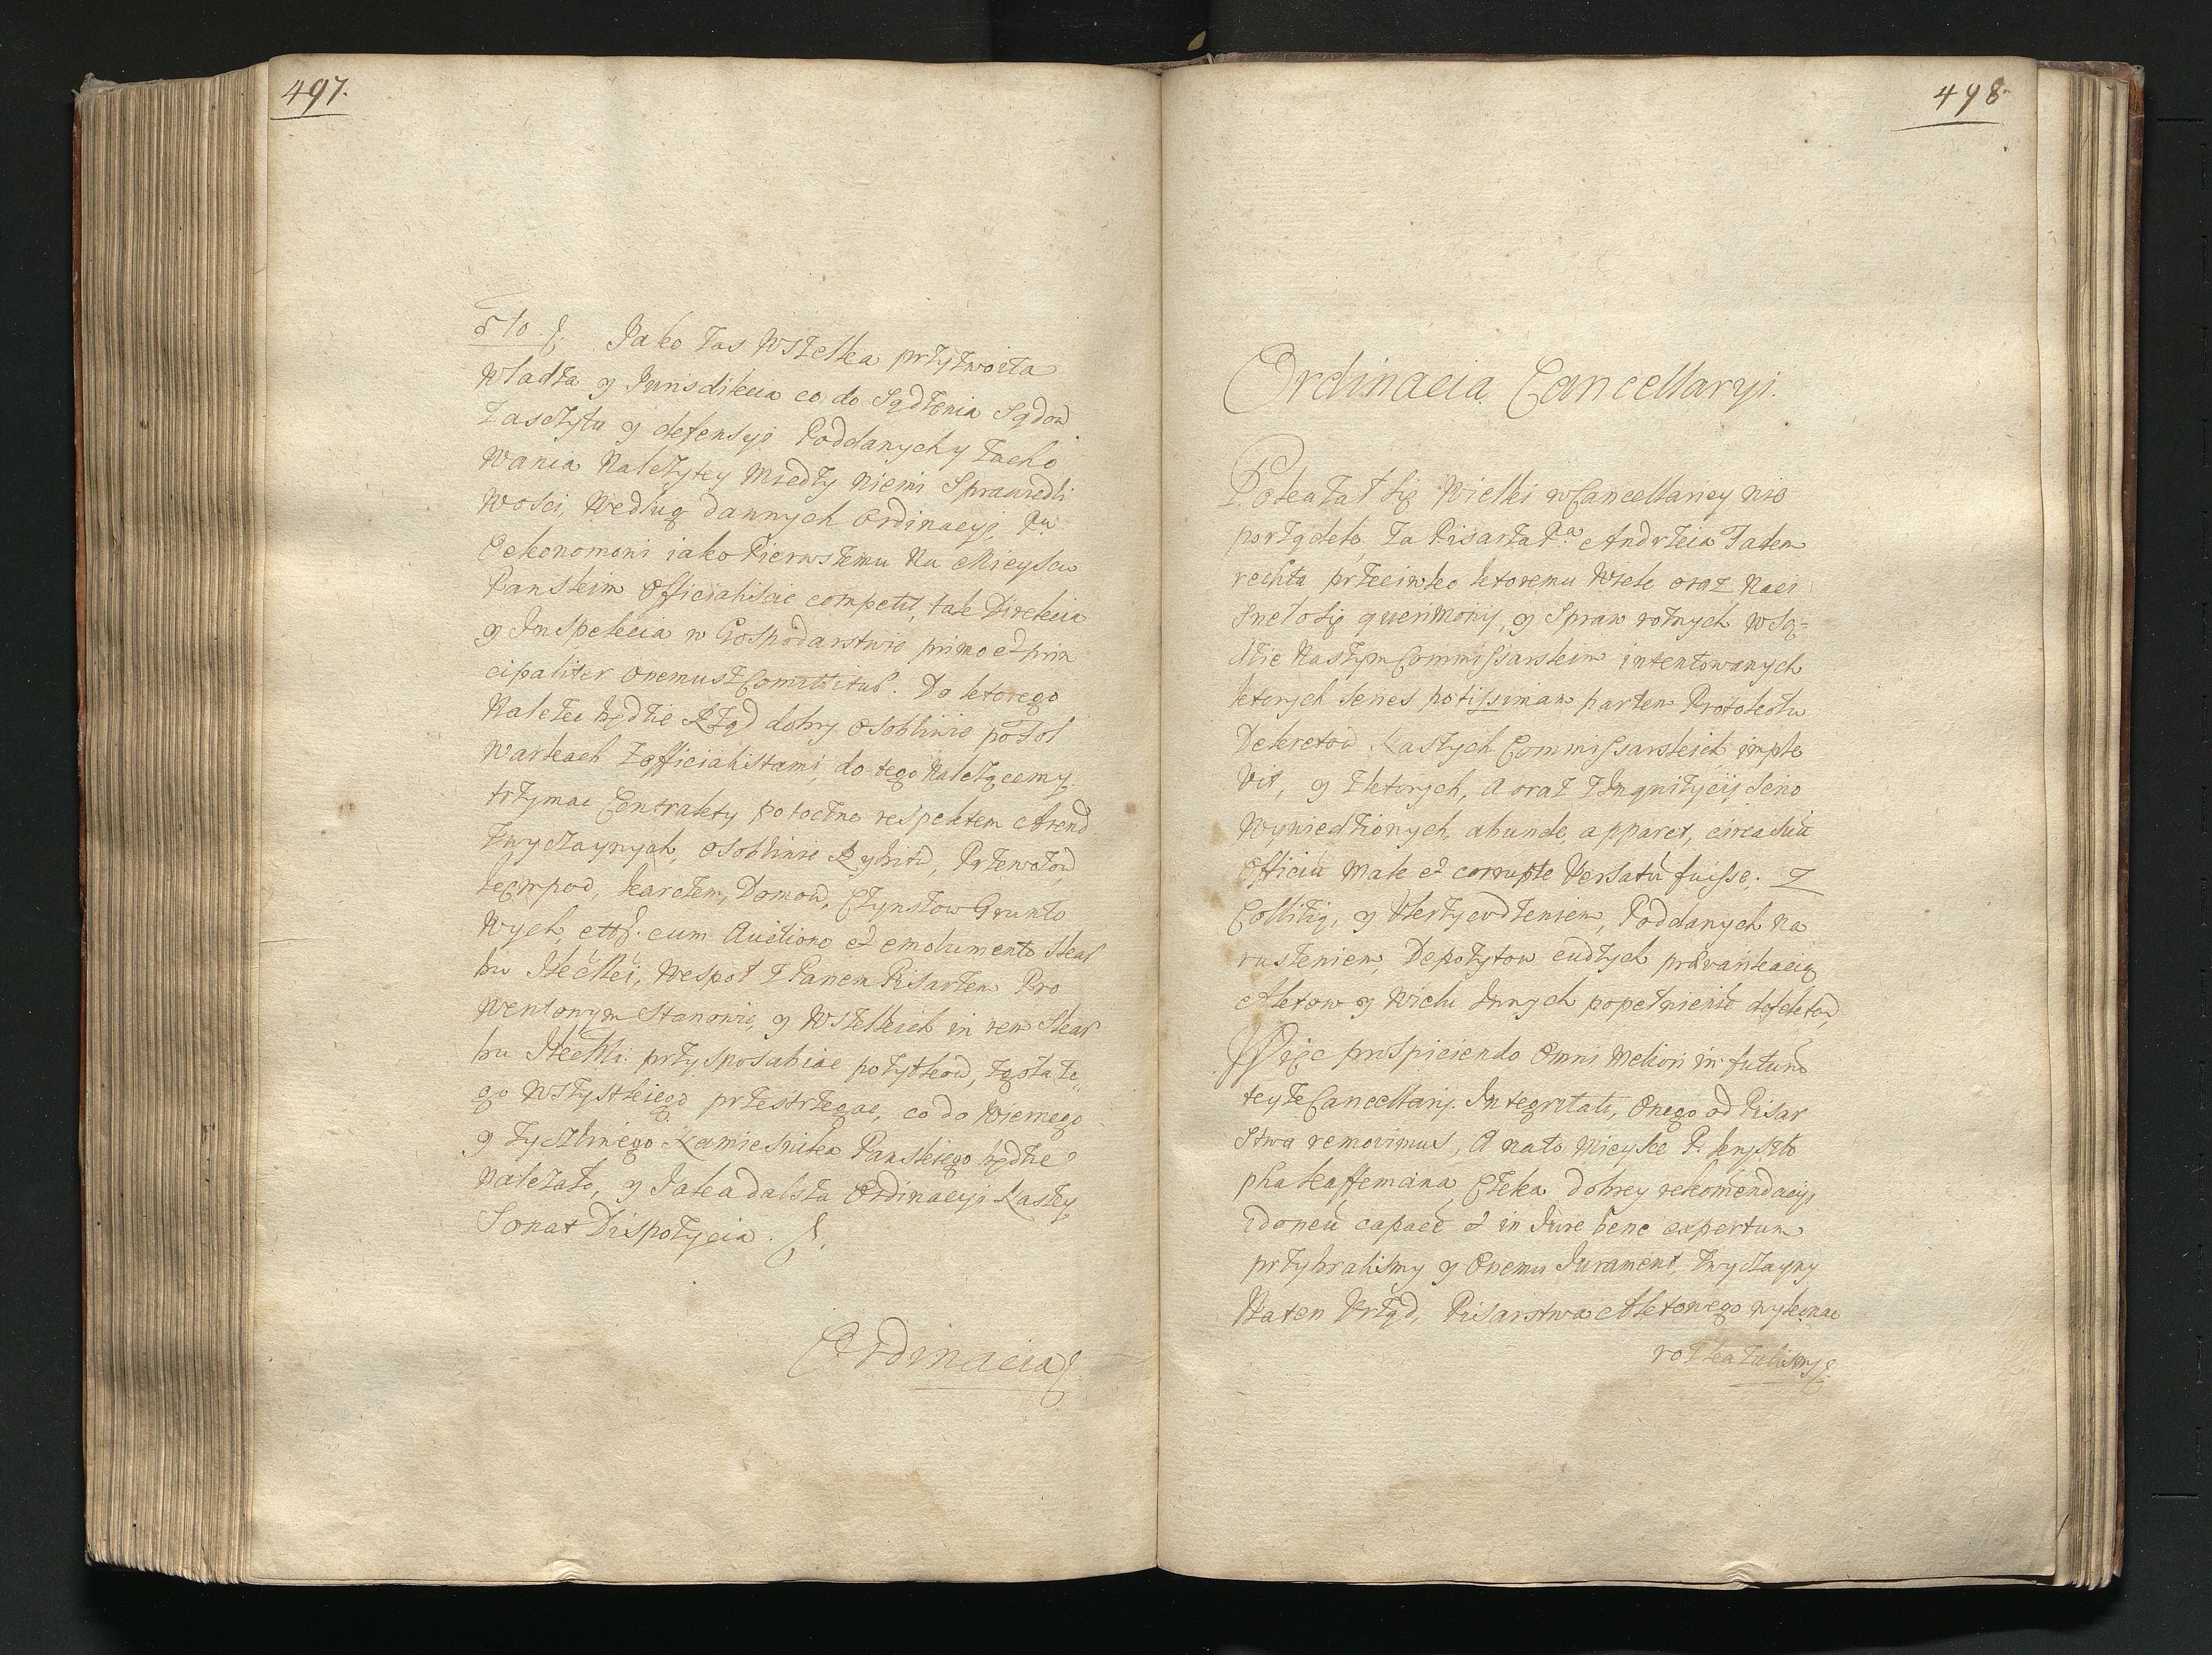 497.
5to. Jako zas wszelka przyzwoita
Władza y Jurisdikcia co do Sądzenia Sądow
zaszczytu y defensyi Poddanych y zacho
wania należytey między niemi Sprawiedli
wosci, według dannych Ordinacyi, Pu
Oekonomoni iako Pierwszemu na Mieyscu
Panskim Officialiscie competit, tak Direkcia
y Inspekcia w Gospodarstwie primo et prin
cipaliter onemusz Comittitur. Do ktorego
należec będzie Rząd dobry osobliwie po Fol
warkach z officialistami, do tego należącemy,
trzymac Contrakty potoczne respektem Arend
zwyczaynych, osobliwie Rybitw, Przewozow,
kęmpod, karczem, Domow, Czynszow Grunto
wych, ett. cum Auctione et emolumento Skar
bu JKcMci, wespoł z Panem Pisarzem Pro
wentonym Stanowic, y wszelkich in rem Skar
bu JKcMci przysposabiac pożytkow, zgoła te
go wszystkiego przestrzegac, co do wiernego
y życzliwego Namiesnika Panskiego będzie
należało, y Jaka dalsza Ordinacyi Naszey
Sonat Dispozycia.
Ordinacia
498
Ordinacia Cancellaryi.
Pokazał się wielki w Cancellariey nie
porządek, za Pisarza Pa Andrzeia Faden
rechta przeciwko ktoremu wiele oraz naci
sneło się querimonij, y Spraw rożnych w Są-
dzie Naszym Commissarskim intentowanych
ktorych Series potissimam partem Protokołu
Dekretow Naszych Commissarskich imple
vit, y z ktorych, a oraz z Inquizycij Seino
wywiedzionych, abunde, apparet, circa suu
Officiu male et corrupte versatu fuisse; Z
Collizią, y ukrzywdzeniem, Poddanych na
ruszeniem, Depozytow cudzych prevarikacią
Aktow y wielu Innych popełnienie defektow,
Więc prospiciendo omni meliori in futuru
teyże Cancellarij Integritati, onego od Pisar
stwa removimus, a na to mieysce P. Krysto
pha kaffemana, Człeka dobrey rekomendacyi
idoneu capace et in Jure bene expertum
przybralismy y onemu Jurament, zwyczayny
na ten Urząd, Pisarstwa Aktowego wykonac
rozkazalismy